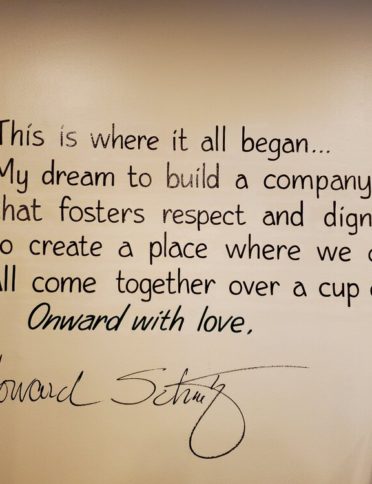 This is where it all began...
My dream to build a company
that fosters respect and dign
to create a place where we c
All come together over a cup
Onward with love,
Howard Schultz